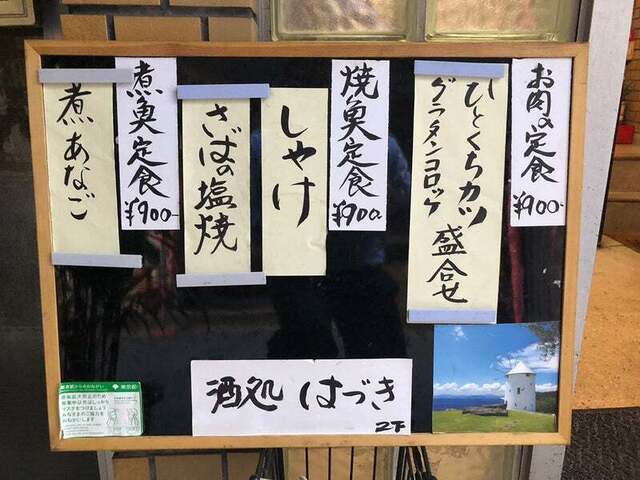 お肉の定食
¥900-
ひとくちカツ
グラタンコロッケ
盛合せ
焼魚定食
¥900
しゃけ
さばの塩焼
煮魚定食
¥900-
煮あなご
酒処 はづき
2F
東京都